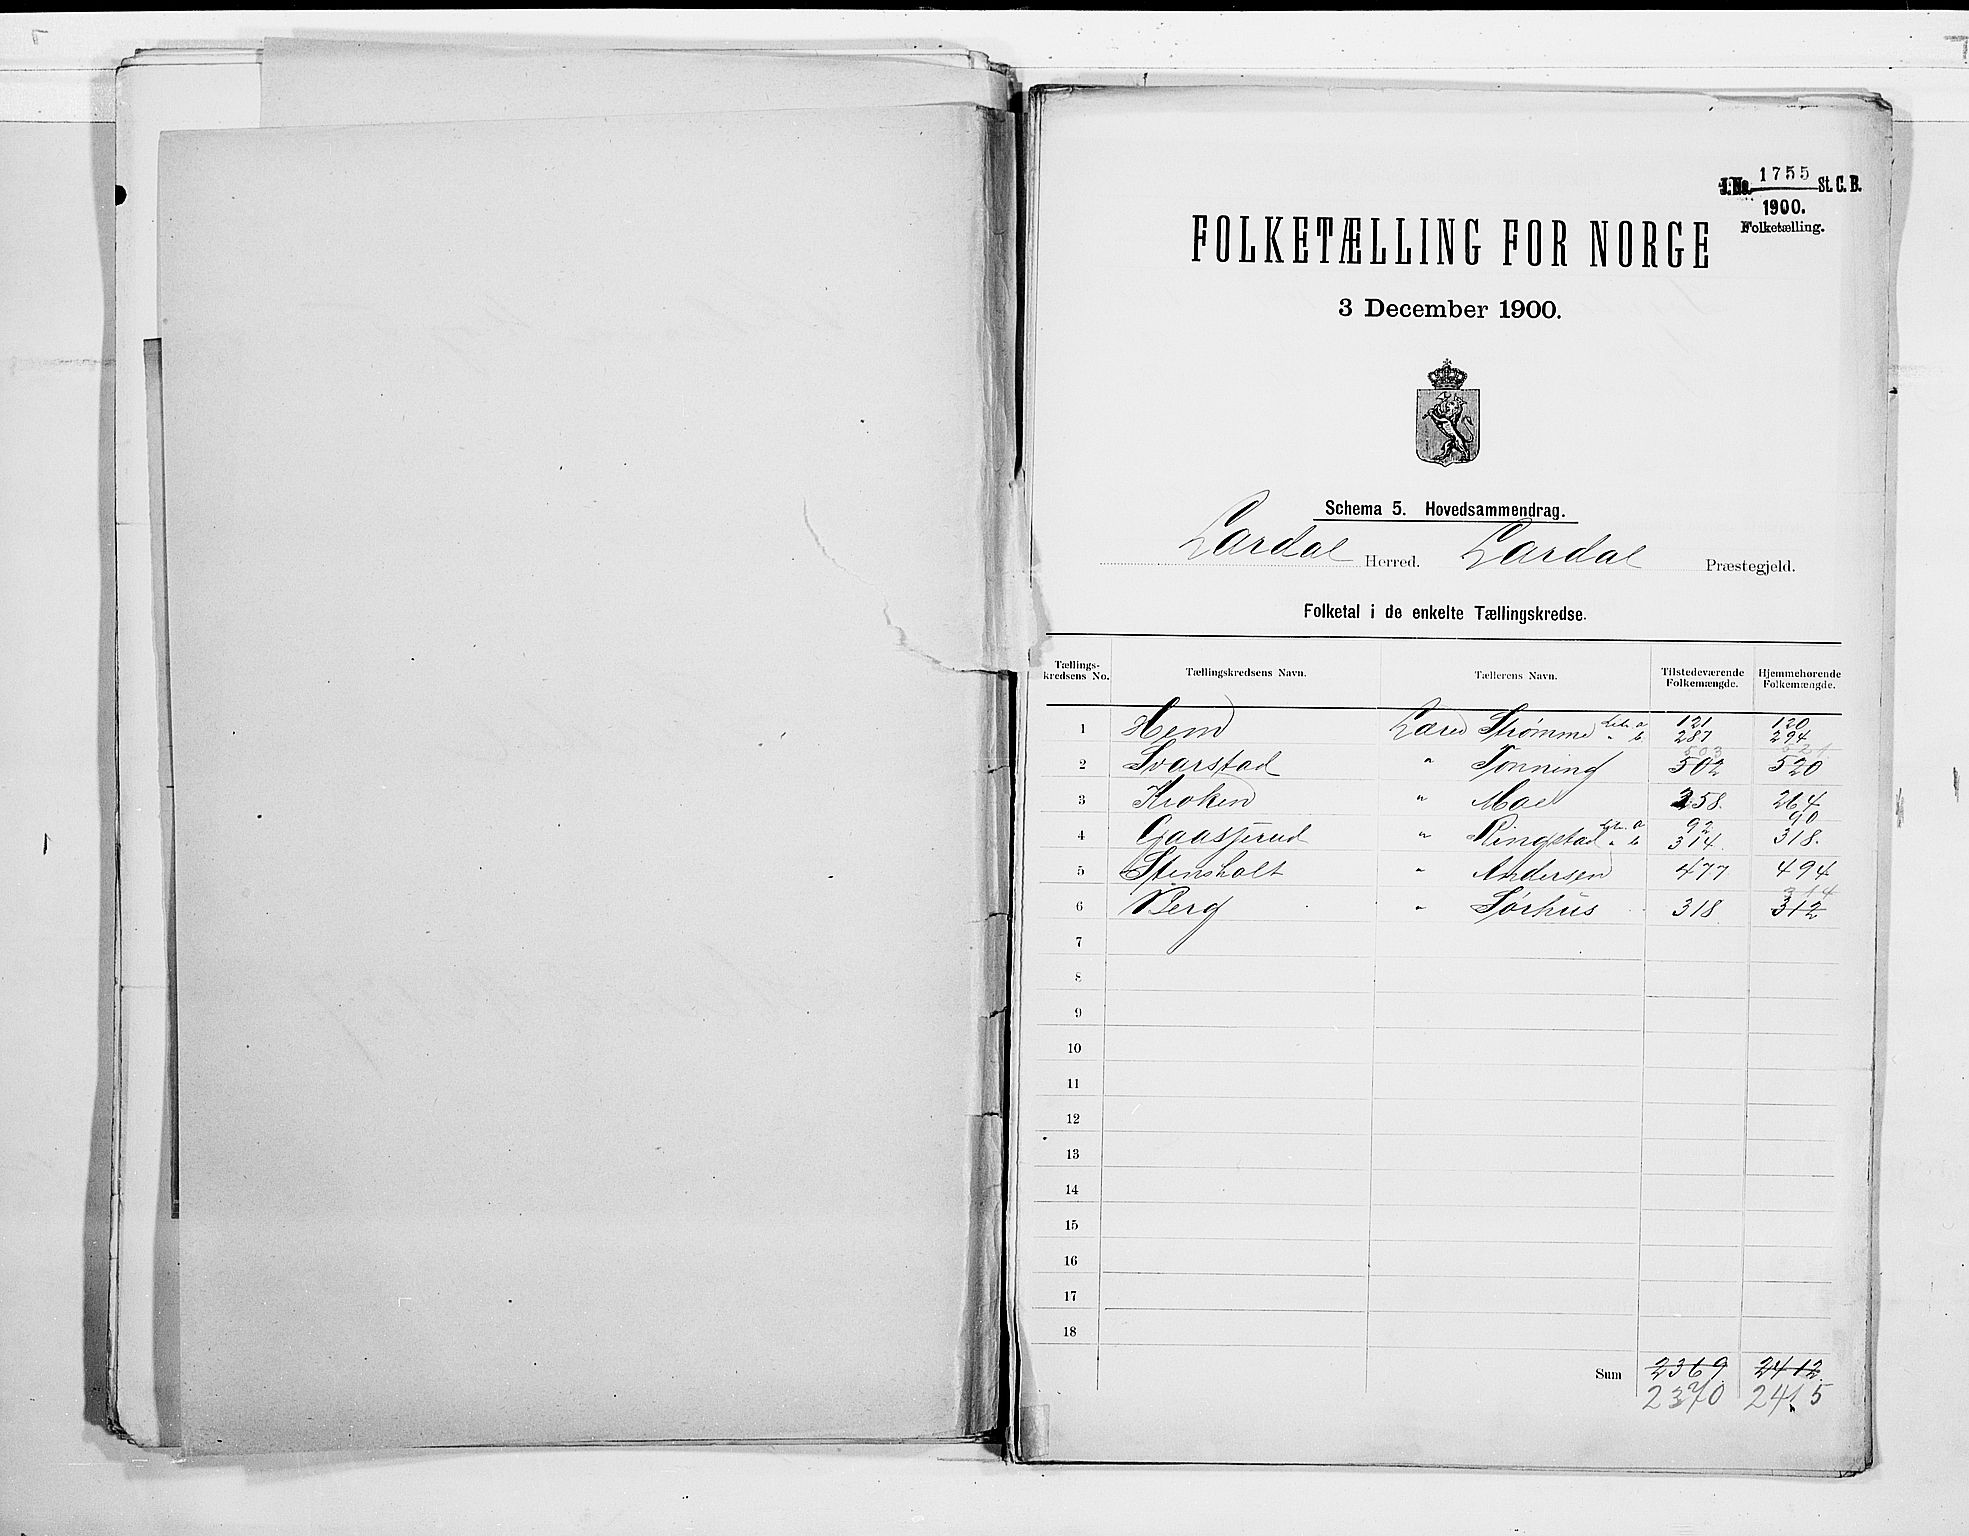 J. No. 1755 St. C. B.
1900.
Folketælling.
FOLKETÆLLING FOR NORGE
3 December 1900.
Schema 5. Hovedsammendrag.
Lardal Herred. Lardal Præstegjeld.
Folketal i de enkelte Tællingskredse.
Tællings-kredsens No. Tællingskredsens Navn. Tællerens Navn. Tilstedeværende Folkemængde. Hjemmehørende Folkemængde.
1 Hem Lærer Strømme litr. a 121 120
" b. 287 294
503 521
2 Svarstad " Tonning 502 520
3 Kroken " Moe 258. 264
4 Gaasjerud " Ringstad litr. a 92 90
" b 314. 318.
5 Stensholt " Andersen 477 494
314
6 Berg " Sørhus 318 312
7
8
9
10
11
12
13
14
15
16
17
18
Sum 2369. 2412.
2370 2415